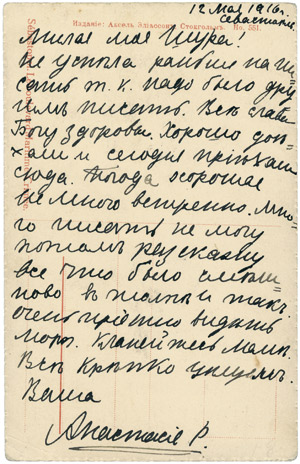 12 Мая, 1916 г.
Севастополь.
Изданіе: Аксель Эліассонъ Стокгольмъ. No. 351.
Милая моя Шура!
Не успѣла раньше на пи=
сать т. к. надо было дру
гимъ писать. Всѣ слава
Богу здоровы. Хорошо доѣ=
хали и сегодня пріѣхали
сюда. Погода хорошая
не много вѣтренно. Мно=
го писать не могу
потомъ разскажу
все что было
очень пріятно видать
море. Кланяйтесь Мамѣ.
Всѣ Крѣпко цѣлуемъ.
Ваша
Анастасія Р.